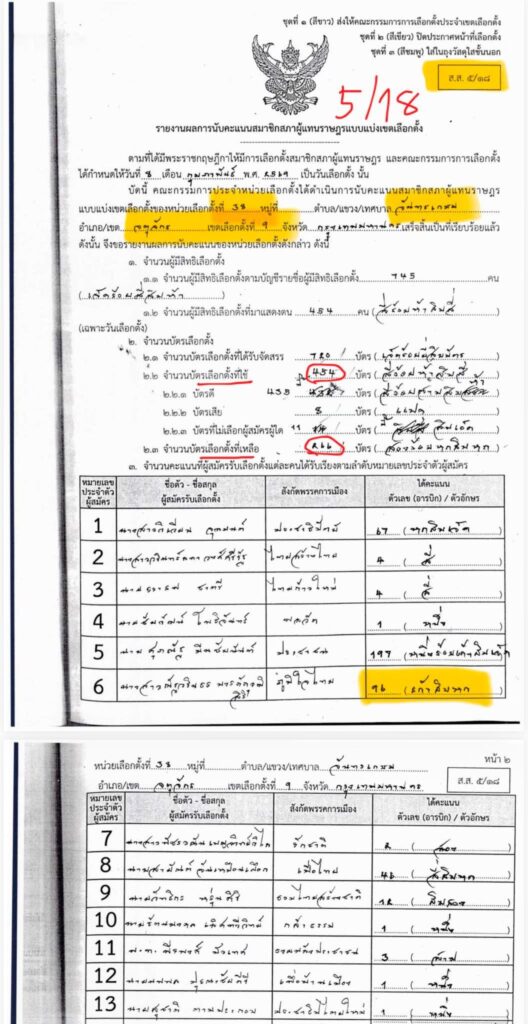 ชุดที่ ๑ (สีขาว) ส่งให้คณะกรรมการการเลือกตั้งประจำเขตเลือกตั้ง
ชุดที่ ๒ (สีเขียว) ปิดประกาศหน้าที่เลือกตั้ง
ชุดที่ ๓ (สีชมพู) ใส่ในถุงวัสดุใสชั้นนอก
ส.ส. ๕/๑๘
5/18
รายงานผลการนับคะแนนสมาชิกสภาผู้แทนราษฎรแบบแบ่งเขตเลือกตั้ง
ตามที่ได้มีพระราชกฤษฎีกาให้มีการเลือกตั้งสมาชิกสภาผู้แทนราษฎร และคณะกรรมการการเลือกตั้ง
ได้กำหนดให้วันที่ 8 เดือน กุมภาพันธ์ พ.ศ. ๒๕๖๙ เป็นวันเลือกตั้ง นั้น
บัดนี้ คณะกรรมการประจำหน่วยเลือกตั้งได้ดำเนินการนับคะแนนสมาชิกสภาผู้แทนราษฎร
แบบแบ่งเขตเลือกตั้งของหน่วยเลือกตั้งที่ 38 หมู่ที่ ตำบล/แขวง/เทศบาล จันทรเกษม
อำเภอ/เขต จตุจักร เขตเลือกตั้งที่ 9 จังหวัด กรุงเทพมหานคร เสร็จสิ้นเป็นที่เรียบร้อยแล้ว
ดังนั้น จึงขอรายงานผลการนับคะแนนของหน่วยเลือกตั้งดังกล่าว ดังนี้
๑. จำนวนผู้มีสิทธิเลือกตั้ง
๑.๑ จำนวนผู้มีสิทธิเลือกตั้งตามบัญชีรายชื่อผู้มีสิทธิเลือกตั้ง 745 คน
(เจ็ดร้อยสี่สิบห้า)
๑.๒ จำนวนผู้มีสิทธิเลือกตั้งที่มาแสดงตน 454 คน (สี่ร้อยห้าสิบสี่)
(เฉพาะวันเลือกตั้ง)
๒. จำนวนบัตรเลือกตั้ง
๒.๑ จำนวนบัตรเลือกตั้งที่ได้รับจัดสรร 720 บัตร (เจ็ดร้อยยี่สิบบัตร)
๒.๒ จำนวนบัตรเลือกตั้งที่ใช้ 454 บัตร (สี่ร้อยห้าสิบสี่)
๒.๒.๑ บัตรดี 435 บัตร (สี่ร้อยสามสิบห้า)
๒.๒.๒ บัตรเสีย 8 บัตร (แปด)
๒.๒.๓ บัตรที่ไม่เลือกผู้สมัครผู้ใด 11 บัตร (สิบเอ็ด)
๒.๓ จำนวนบัตรเลือกตั้งที่เหลือ 266 บัตร (สองร้อยหกสิบหก)
๓. จำนวนคะแนนที่ผู้สมัครรับเลือกตั้งแต่ละคนได้รับเรียงตามลำดับหมายเลขประจำตัวผู้สมัคร
หมายเลขประจำตัวผู้สมัคร ชื่อตัว - ชื่อสกุล ผู้สมัครรับเลือกตั้ง สังกัดพรรคการเมือง ได้คะแนน ตัวเลข (อารบิก) / ตัวอักษร
1 ประชาธิปัตย์ 67 (หกสิบเจ็ด)
2 ไทยสร้างไทย 4 (สี่)
3 ไทยก้าวใหม่ 4 (สี่)
4 พลวัต 1 (หนึ่ง)
5 ประชาชน 197 (หนึ่งร้อยเก้าสิบเจ็ด)
6 ภูมิใจไทย 96 (เก้าสิบหก)
หน่วยเลือกตั้งที่ 38 หมู่ที่ ตำบล/แขวง/เทศบาล จันทรเกษม หน้า ๒
อำเภอ/เขต จตุจักร เขตเลือกตั้งที่ 9 จังหวัด กรุงเทพมหานคร ส.ส. ๕/๑๘
หมายเลขประจำตัวผู้สมัคร ชื่อตัว - ชื่อสกุล ผู้สมัครรับเลือกตั้ง สังกัดพรรคการเมือง ได้คะแนน ตัวเลข (อารบิก) / ตัวอักษร
7 รักชาติ 2 (สอง)
8 เพื่อไทย 46 (สี่สิบหก)
9 รวมไทยสร้างชาติ 12 (สิบสอง)
10 กล้าธรรม 1 (หนึ่ง)
11 3 (สาม)
12 1 (หนึ่ง)
13 ประชาธิปไตยใหม่ 1 (หนึ่ง)